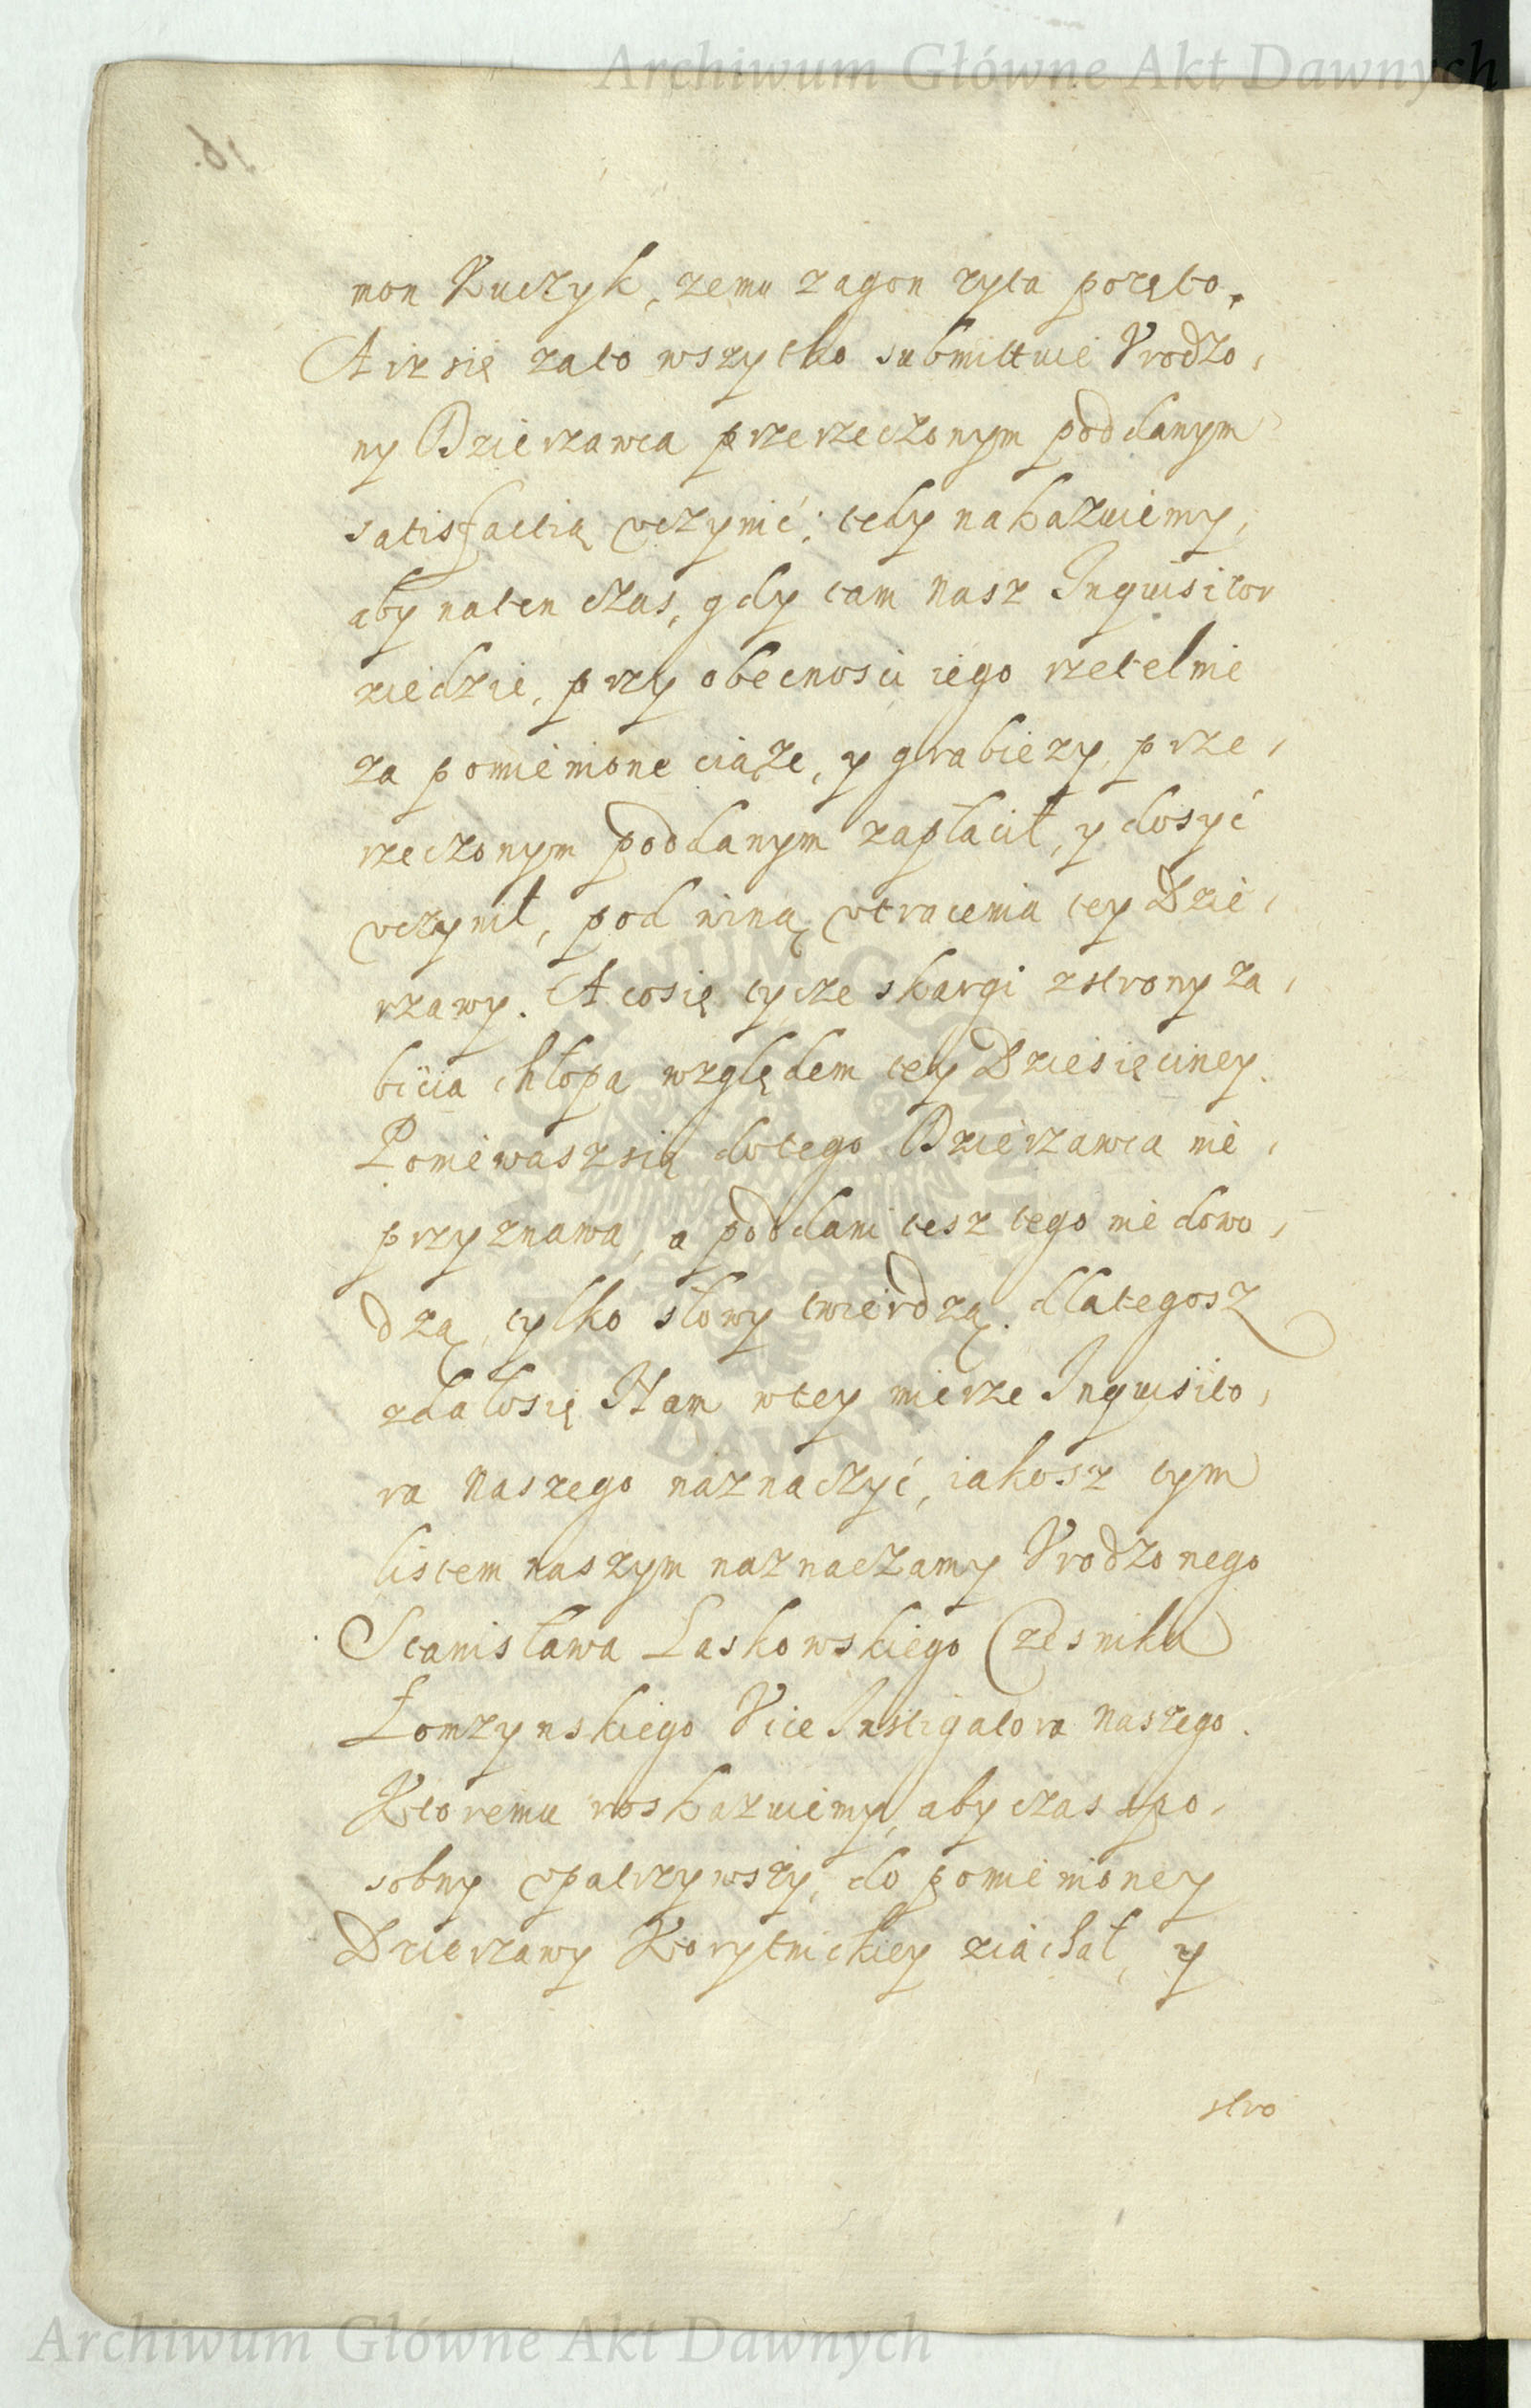 Archiwum Główne Akt Dawnych
16.
mon Kuczyk, zemu zagon zyta pozęto.
A iz się zato wszytko submittuie Vrodzo,
ny Dzierzawca przerzeczonym poddanym
satisfactią vczynić; tedy nakazuiemy,
aby naten czas, gdy tam Nasz Inquisitor
ziedzie, przy obecnosci iego rzetelnie
za pomienione ciąze, y grabiezy, prze,
rzeczonym poddanym zapłacił, y dosyć
vczynił, pod winą vtracenia tey Dzie,
rzawy. A cosię tycze skargi zstrony za,
bicia chłopa względem tey Dziesięciney.
Poniewasz się dotego Dzierzawca nie,
przyznawa, a poddani tesz tego nie dowo,
dzą, tylko słowy twierdzą. dlategosz
zdałosię Nam wtey mierze Inquisito,
ra Naszego naznaczyć, iakosz tym
listem naszym naznaczamy Vrodzonego
Stanisława Laskowskiego Czesnika
Łomzynskiego Vice Instigatora Naszego.
Ktoremu roskazuiemy, aby czas spo,
sobny vpatrzywszy, do pomienioney
Dzierzawy Korytnickiey ziachał, y
stro
ARCHIWUM GŁÓWNE AKT DAWNYCH
Archiwum Główne Akt Dawnych